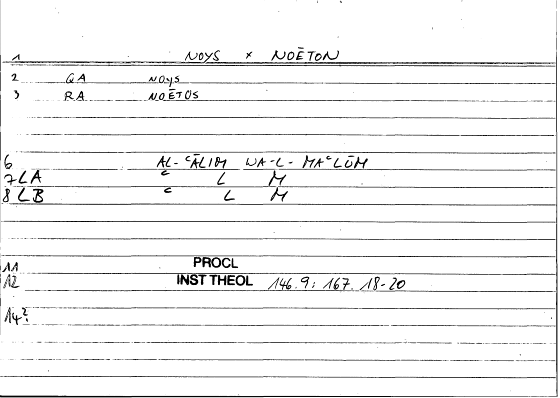 1 NOYS × NOĒTON
2 QA NOYS
3 RA NOĒTOS
6 AL-ʿĀLIM WA-L-MAʿLŪM
7 LA ʿ L M
8 LB ʿ L M
11 PROCL
12 INST THEOL 146.9; 167.18-20
14?: